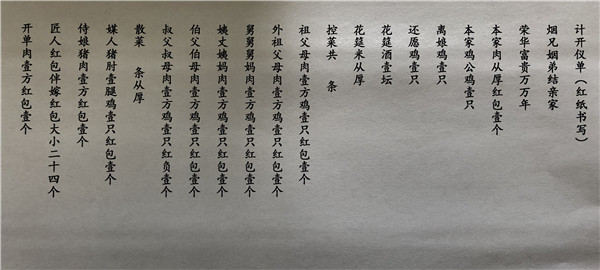 计开仪单（红纸书写）
烟兄姻弟结亲家
荣华富贵万万年
本家肉从厚红包壹个
本家鸡公鸡壹只
离娘鸡壹只
还愿鸡壹只
花筵酒壹坛
花筵米从厚
控菜共 条
祖父母肉壹方鸡壹只红包壹个
外祖父母肉壹方鸡壹只红包壹个
舅舅舅妈肉壹方鸡壹只红包壹个
姨丈姨妈肉壹方鸡壹只红包壹个
伯父伯母肉壹方鸡壹只红包壹个
叔父叔母肉壹方鸡壹只红负壹个
散菜 条从厚
媒人猪肘壹腿鸡壹只红包壹个
侍娘猪肉壹方红包壹个
匠人红包伴嫁红包大小二十四个
开单肉壹方红包壹个